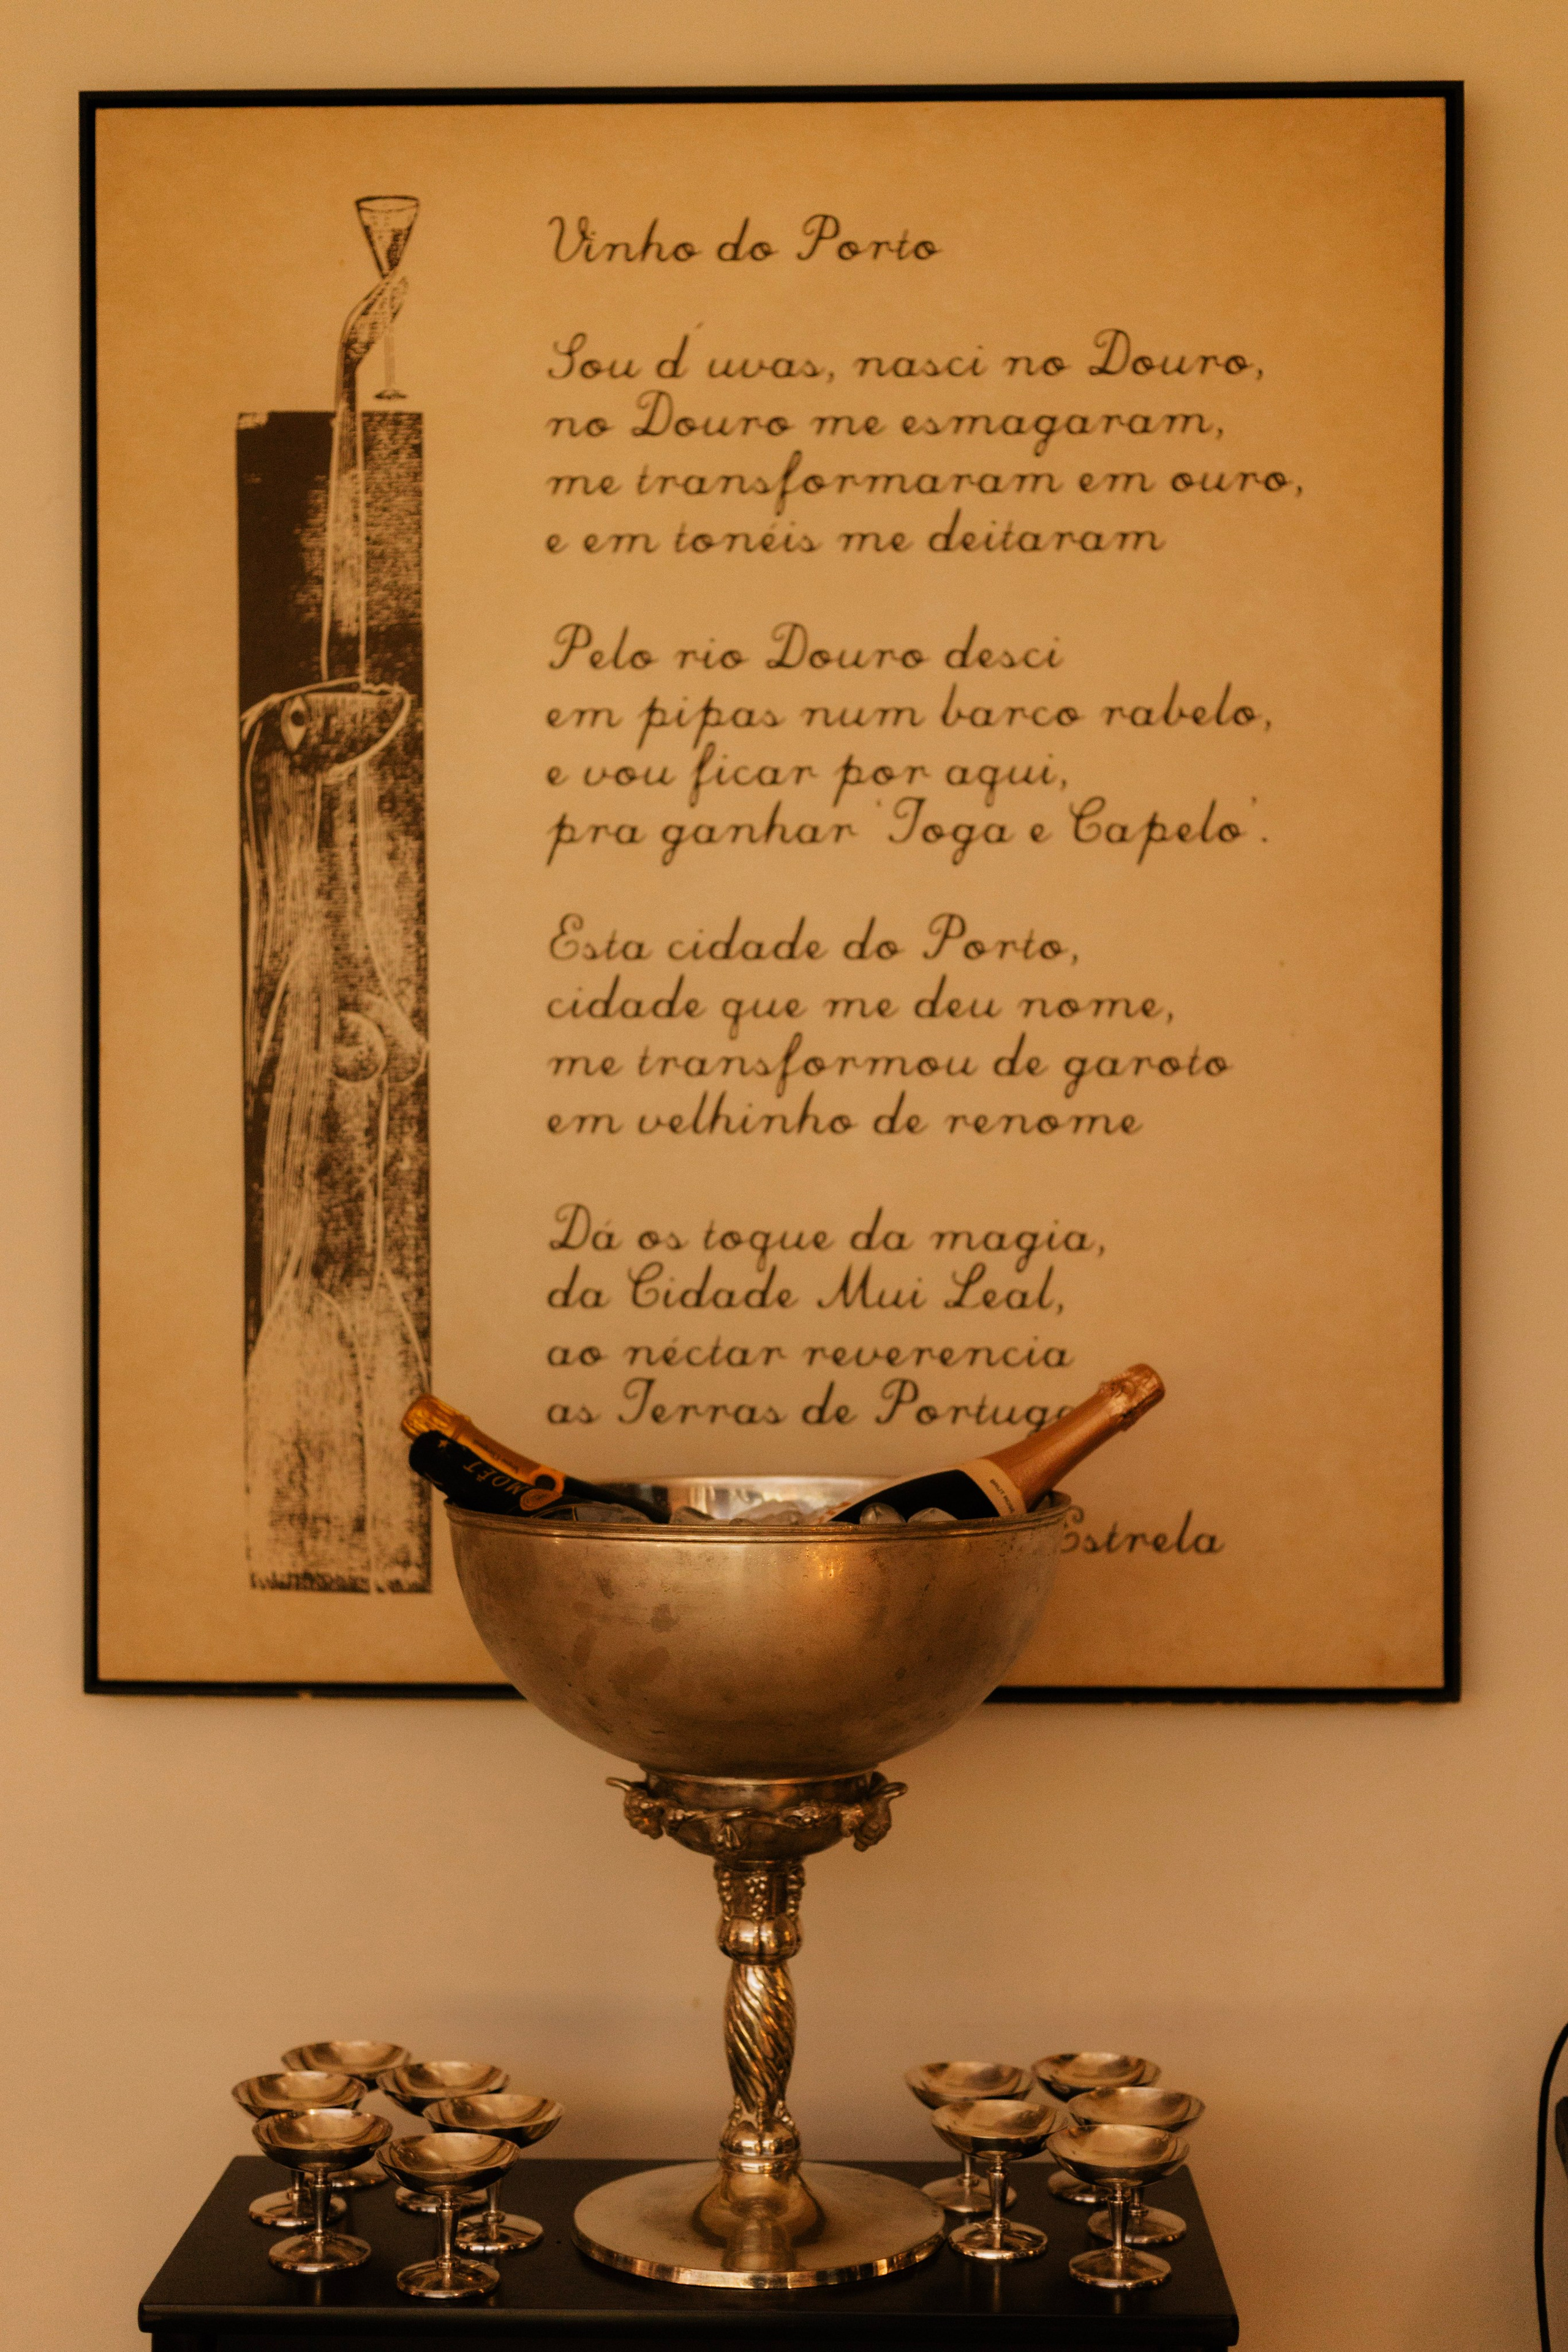 Vinho do Porto
Sou d´uvas, nasci no Douro,
no Douro me esmagaram,
me transformaram em ouro,
e em tonéis me deitaram
Pelo rio Douro desci
em pipas num barco rabelo,
e vou ficar por aqui,
pra ganhar 'Toga e Capelo'.
Esta cidade do Porto,
cidade que me deu nome,
me transformou de garoto
em velhinho de renome
Dá os toque da magia,
da Cidade Mui Leal,
ao néctar reverencia
as Terras de Portuga
Estrela
MOËT